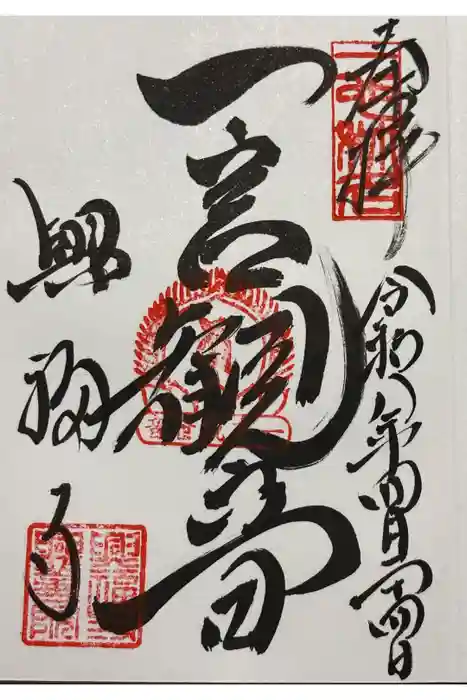 奉拝
令和年四月十四日
一言観音
興福寺